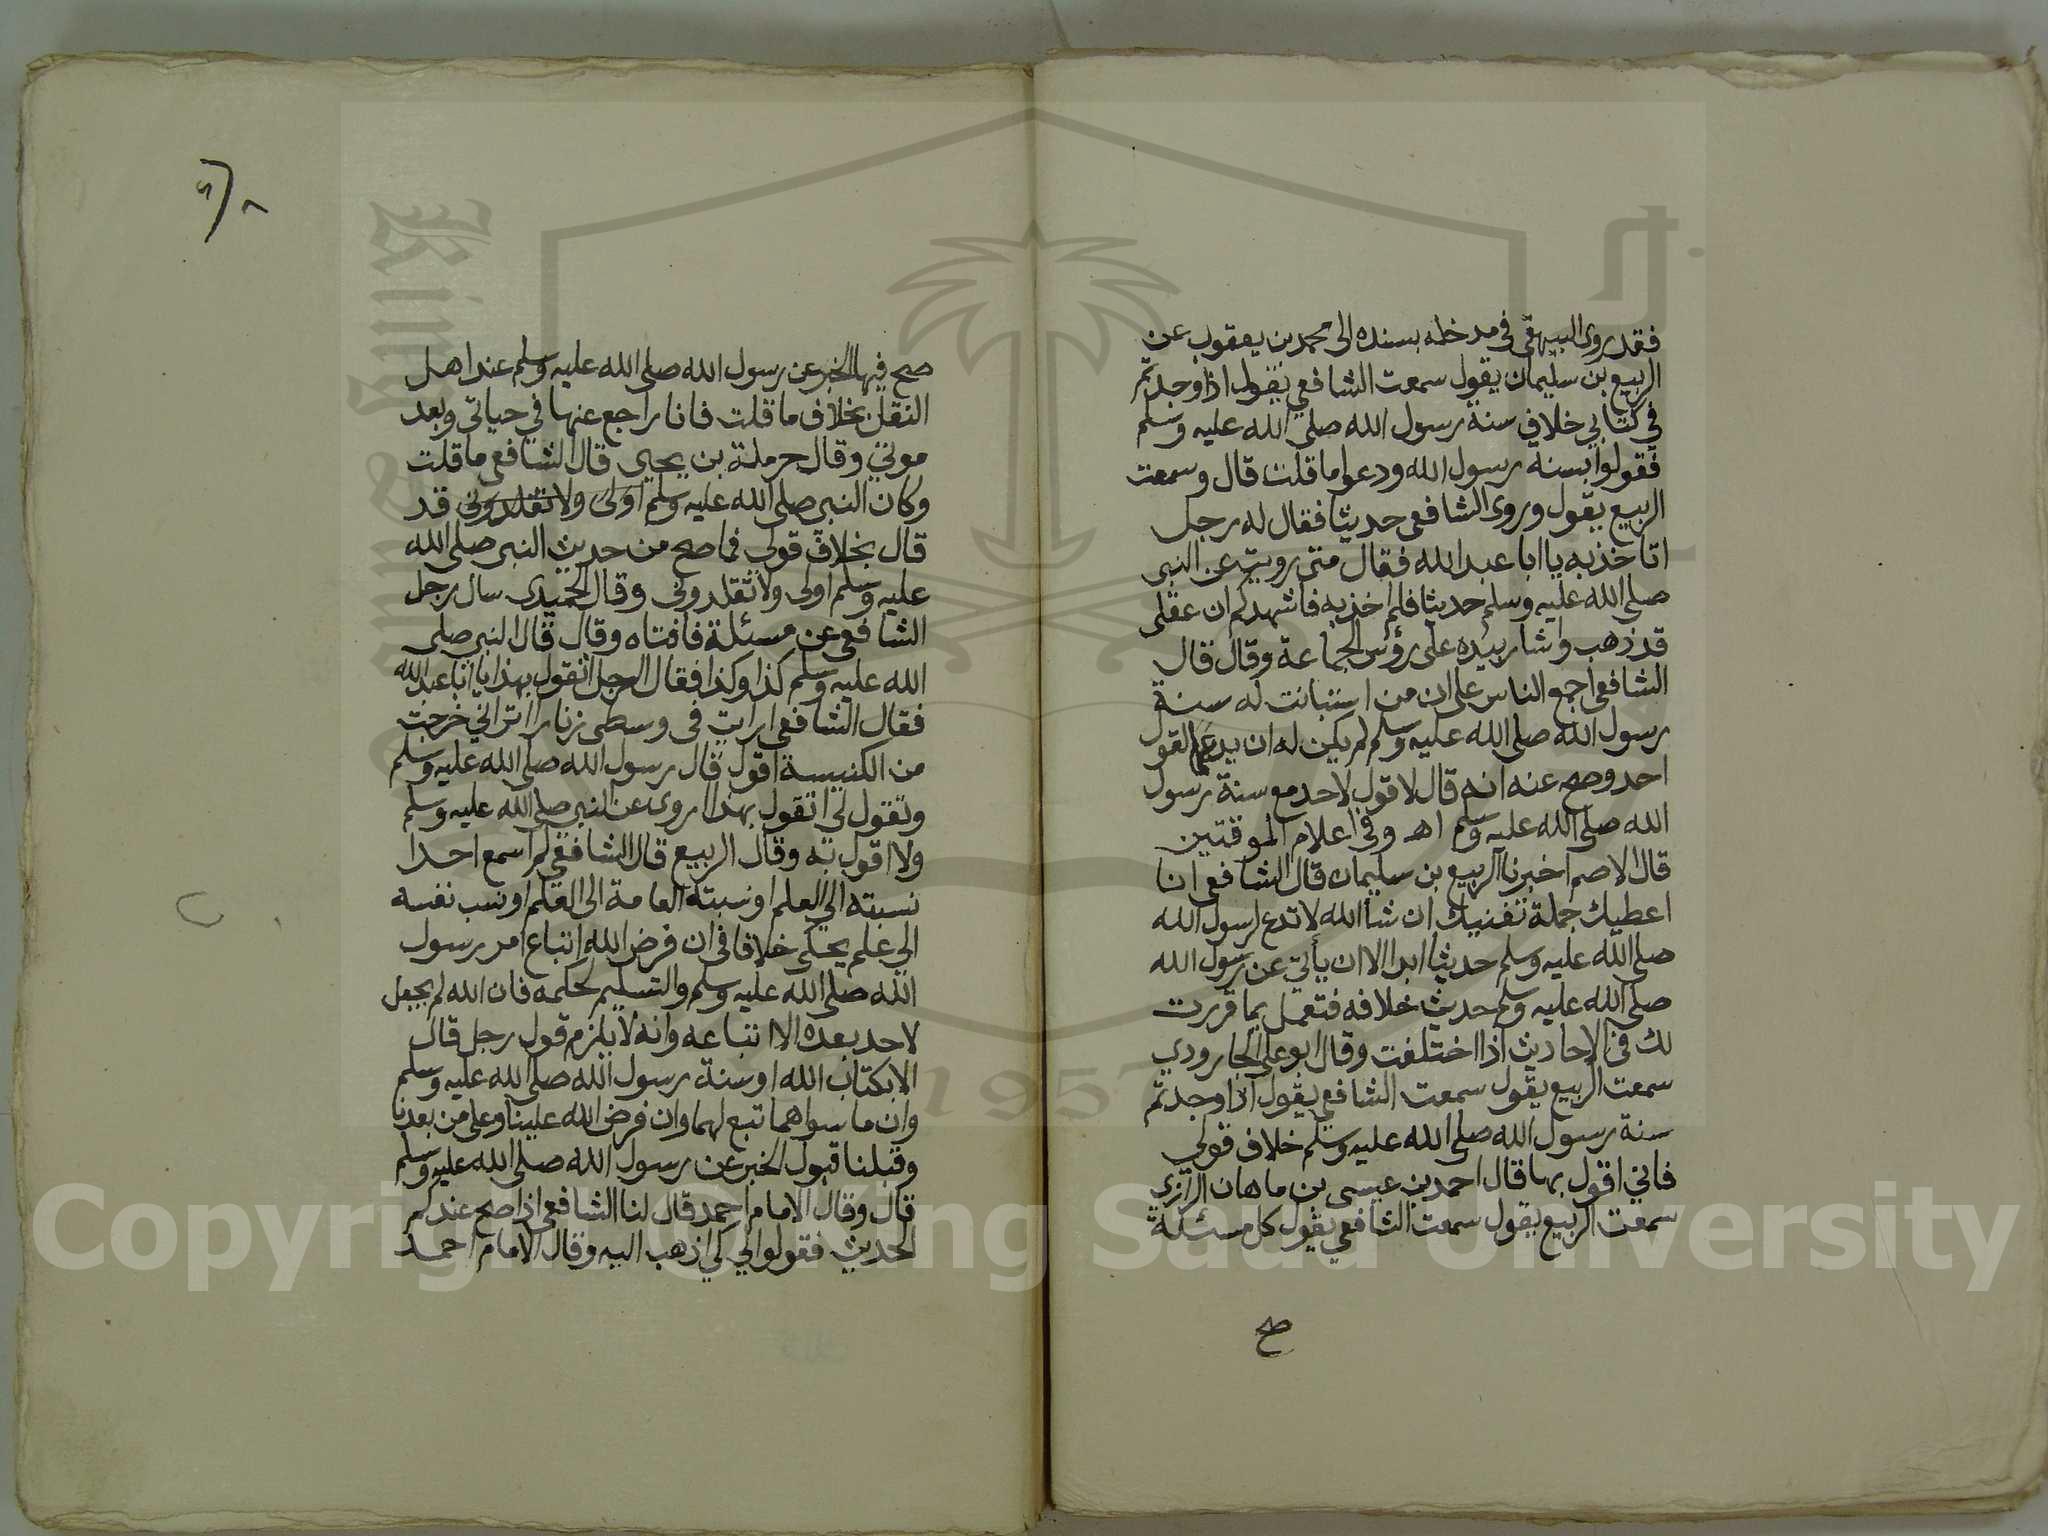 فقد روى البيهقي في مدخله بسنده الى محمد بن يعقوب عن
الربيع بن سليمان يقول سمعت الشافعي يقول اذا وجدتم
في كتابي خلاف سنة رسول الله صلى الله عليه وسلم
فقولوا بسنة رسول الله ودعوا ما قلت قال وسمعت
الربيع يقول وروى الشافعي حديثا فقال له رجل
اتاخذ به يا ابا عبد الله فقال متى رويت عن النبي
صلى الله عليه وسلم حديثا فلم اخذ به فاشهدكم ان عقلى
قد ذهب واشار بيده على رؤس الجماعة وقال قال
الشافعى اجمع الناس على ان من استبانت له سنة
رسول الله صلى الله عليه وسلم لم يكن له ان يدعها لقول
احد وصح عنه انه قال لا قول لاحد مع سنة رسول
الله صلى الله عليه وسلم اهـ وفى اعلام الموقنين
قال الاصم اخبرنا الربيع بن سليمان قال الشافعى انا
اعطيك جملة تغنيك ان شا الله لا تدع لرسول الله
صلى الله عليه وسلم حديثا ابدا الا ان يأتى عن رسول الله
صلى الله عليه وسلم حديث خلافه فتعمل بما قررت
لك في الاحاديث اذا اختلفت وقال ابو على الجارودي
سمعت الربيع يقول سمعت الشافعي يقول اذا وجدتم
سنة رسول الله صلى الله عليه وسلم خلاف قولي
فاني اقول بها قال احمد بن عيسى بن ماهان الرازي
سمعت الربيع يقول سمعت الشافعي يقول كل مسئلة
صح
صح فيها الخبر عن رسول الله صلى الله عليه وسلم عند اهل
النقل بخلاف ما قلت فانا راجع عنها في حياتى وبعد
موتي وقال حرملة بن يحيى قال الشافعى ما قلت
وكان النبى صلى الله عليه وسلم اولى ولا تقلدونى قد
قال بخلاف قولى فما صح من حديث النبى صلى الله
عليه وسلم اولى ولا تقلدونى وقال الحميدى سال رجل
الشافعى عن مسئلة فافتاه وقال قال النبى صلى
الله عليه وسلم كذا وكذا فقال الرجل اتقول بهذا يا ابا عبد الله
فقال الشافعى ارايت فى وسطى زنارا اترانى خرجت
من الكنيسة اقول قال رسول الله صلى الله عليه وسلم
وتقول لى اتقول بهذا اروى عن النبى صلى الله عليه وسلم
ولا اقول به وقال الربيع قال الشافعى لم اسمع احدا
نسبته الى العلم او نسبته العامة الى العلم او نسب نفسه
الى علم يحكى خلافا فى ان فرض الله اتباع امر رسول
الله صلى الله عليه وسلم والتسليم لحكمه فان الله لم يجعل
لاحد بعده الا اتباعه وانه لا يلزم قول رجل قال
الا بكتاب الله او سنة رسول الله صلى الله عليه وسلم
وان ما سواهما تبع لهما وان فرض الله علينا وعلى من بعدنا
وقبلنا قبول الخبر عن رسول الله صلى الله عليه وسلم
قال وقال الامام احمد قال لنا الشافعى اذا صح عندكم
الحديث فقولوا لي كي اذهب اليه وقال الامام احمد
King Saud University
1957
Copyright © King Saud University